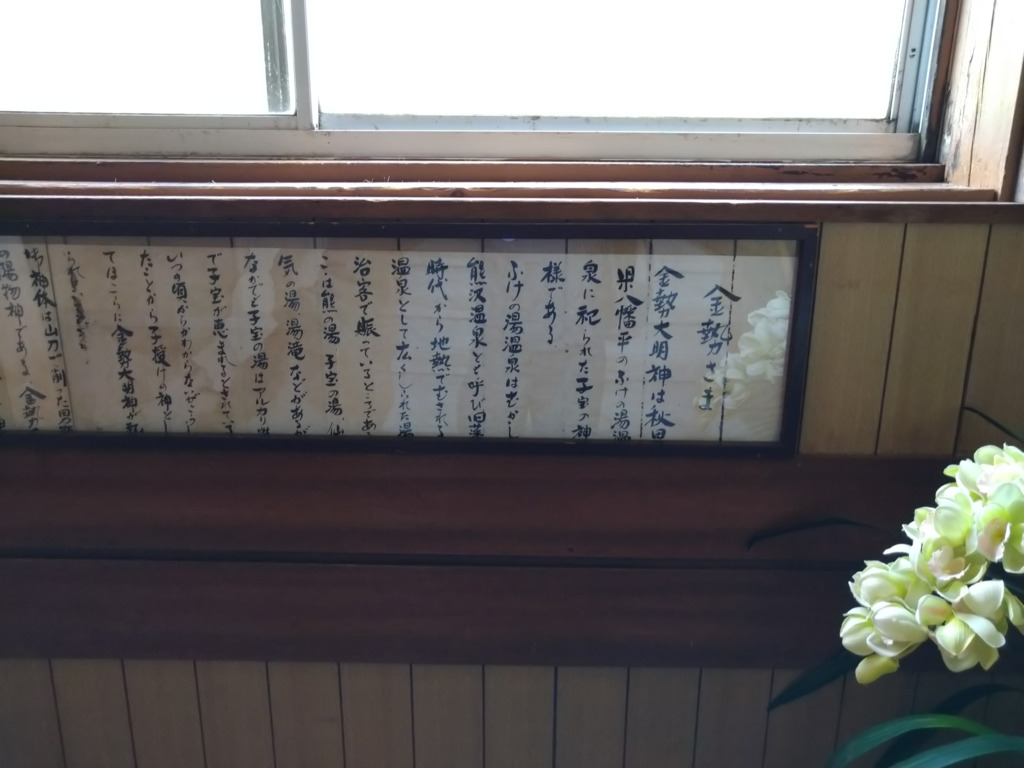 金勢さま
金勢大明神は秋田
県八幡平のふけの湯温
泉に祀られた子宝の神
様である
ふけの湯温泉はむかし
熊沢温泉とも呼び旧藩
時代から地熱でむされる
温泉として広くしられた湯
治客で賑っているところである
こは熊の湯 子宝の湯 仙
気の湯 湯滝などがあるが
なかでも子宝の湯はアルカリ
で子宝が恵まれるとされて
いつの頃からかわからないがこうし
たことから子授けの神とし
てほこらに金勢大明神が
られ
御神体は山刀で削った男
の陽物神である 金勢